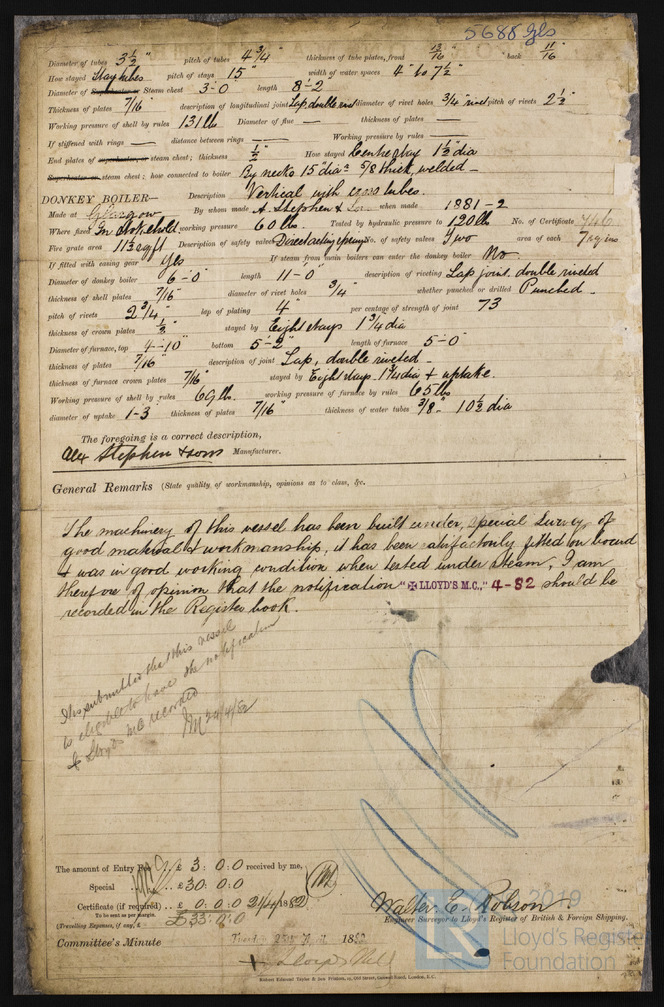 5688 gls
Diameter of tubes 3 1/2" pitch of tubes 4 3/4" thickness of tube plates, front 13/16" back 11/16"
How stayed Stay tubes pitch of stays 15" width of water spaces 4" to 7 1/2"
Diameter of Superheater or Steam chest 3-0 length 8-2
Thickness of plates 7/16" description of longitudinal joint Lap double rivd diameter of rivet holes 3/4" rivet pitch of rivets 2 1/2"
Working pressure of shell by rules 131 lb Diameter of flue — thickness of plates —
If stiffened with rings — distance between rings — Working pressure by rules —
End plates of superheater, or steam chest; thickness 1/2" How stayed Centre stay 1 1/2 dia
Superheater or steam chest; how connected to boiler By necks 15" dia 5/8 thick, welded —
DONKEY BOILER— Description Vertical with cross tubes.
Made at Glasgow By whom made A. Stephen & Sons when made 1881-2
Where fixed In Stokehold working pressure 60 lb. Tested by hydraulic pressure to 120 lb No. of Certificate 746
Fire grate area 11 3 sq ft Description of safety valves Direct acting spring No. of safety valves Two area of each 7 sq ins
If fitted with easing gear yes If steam from main boilers can enter the donkey boiler No
Diameter of donkey boiler 6-0" length 11-0" description of riveting Lap joint. double riveted
thickness of shell plates 7/16" diameter of rivet holes 3/4" whether punched or drilled Punched —
pitch of rivets 2 3/4" lap of plating 4" per centage of strength of joint 73
thickness of crown plates 1/2" stayed by Eight stays 1 3/4 dia
Diameter of furnace, top 4-10" bottom 5-2" length of furnace 5-0"
thickness of plates 7/16" description of joint Lap, double riveted —
thickness of furnace crown plates 7/16" stayed by Eight stays 1 3/4 dia & uptake.
Working pressure of shell by rules 69 lb. working pressure of furnace by rules 65 lbs
diameter of uptake 1-3 thickness of plates 7/16" thickness of water tubes 3/8" 10 1/2 dia
The foregoing is a correct description,
Alex Stephen & Sons Manufacturer.
General Remarks (State quality of workmanship, opinions as to class, &c.
The machinery of this vessel has been built under, special survey, of
good material & workmanship, it has been satisfactorily fitted on board
& was in good working condition when tested under steam, I am
therefore of opinion that the notification "✠ LLOYD'S M.C.," 4-82 should be
recorded in the Register book.
It is submitted that this vessel
is eligible to have the notification
✠ Lloyds MC recorded
24/4/82
The amount of Entry Fee .. £ 3 : 0 : 0 received by me,
Special .. £ 30 : 0 : 0
Certificate (if required) .. £ 0 : 0 : 0 21/4/1882
To be sent as per margin.
(Travelling Expenses, if any, £
£33 : 0 : 0
Walter C. Robson
Engineer Surveyor to Lloyd's Register of British & Foreign Shipping.
Committee's Minute Tuesday 25th April 1882
+ Lloyd's
© 2019
LR
Lloyd's Register
Foundation